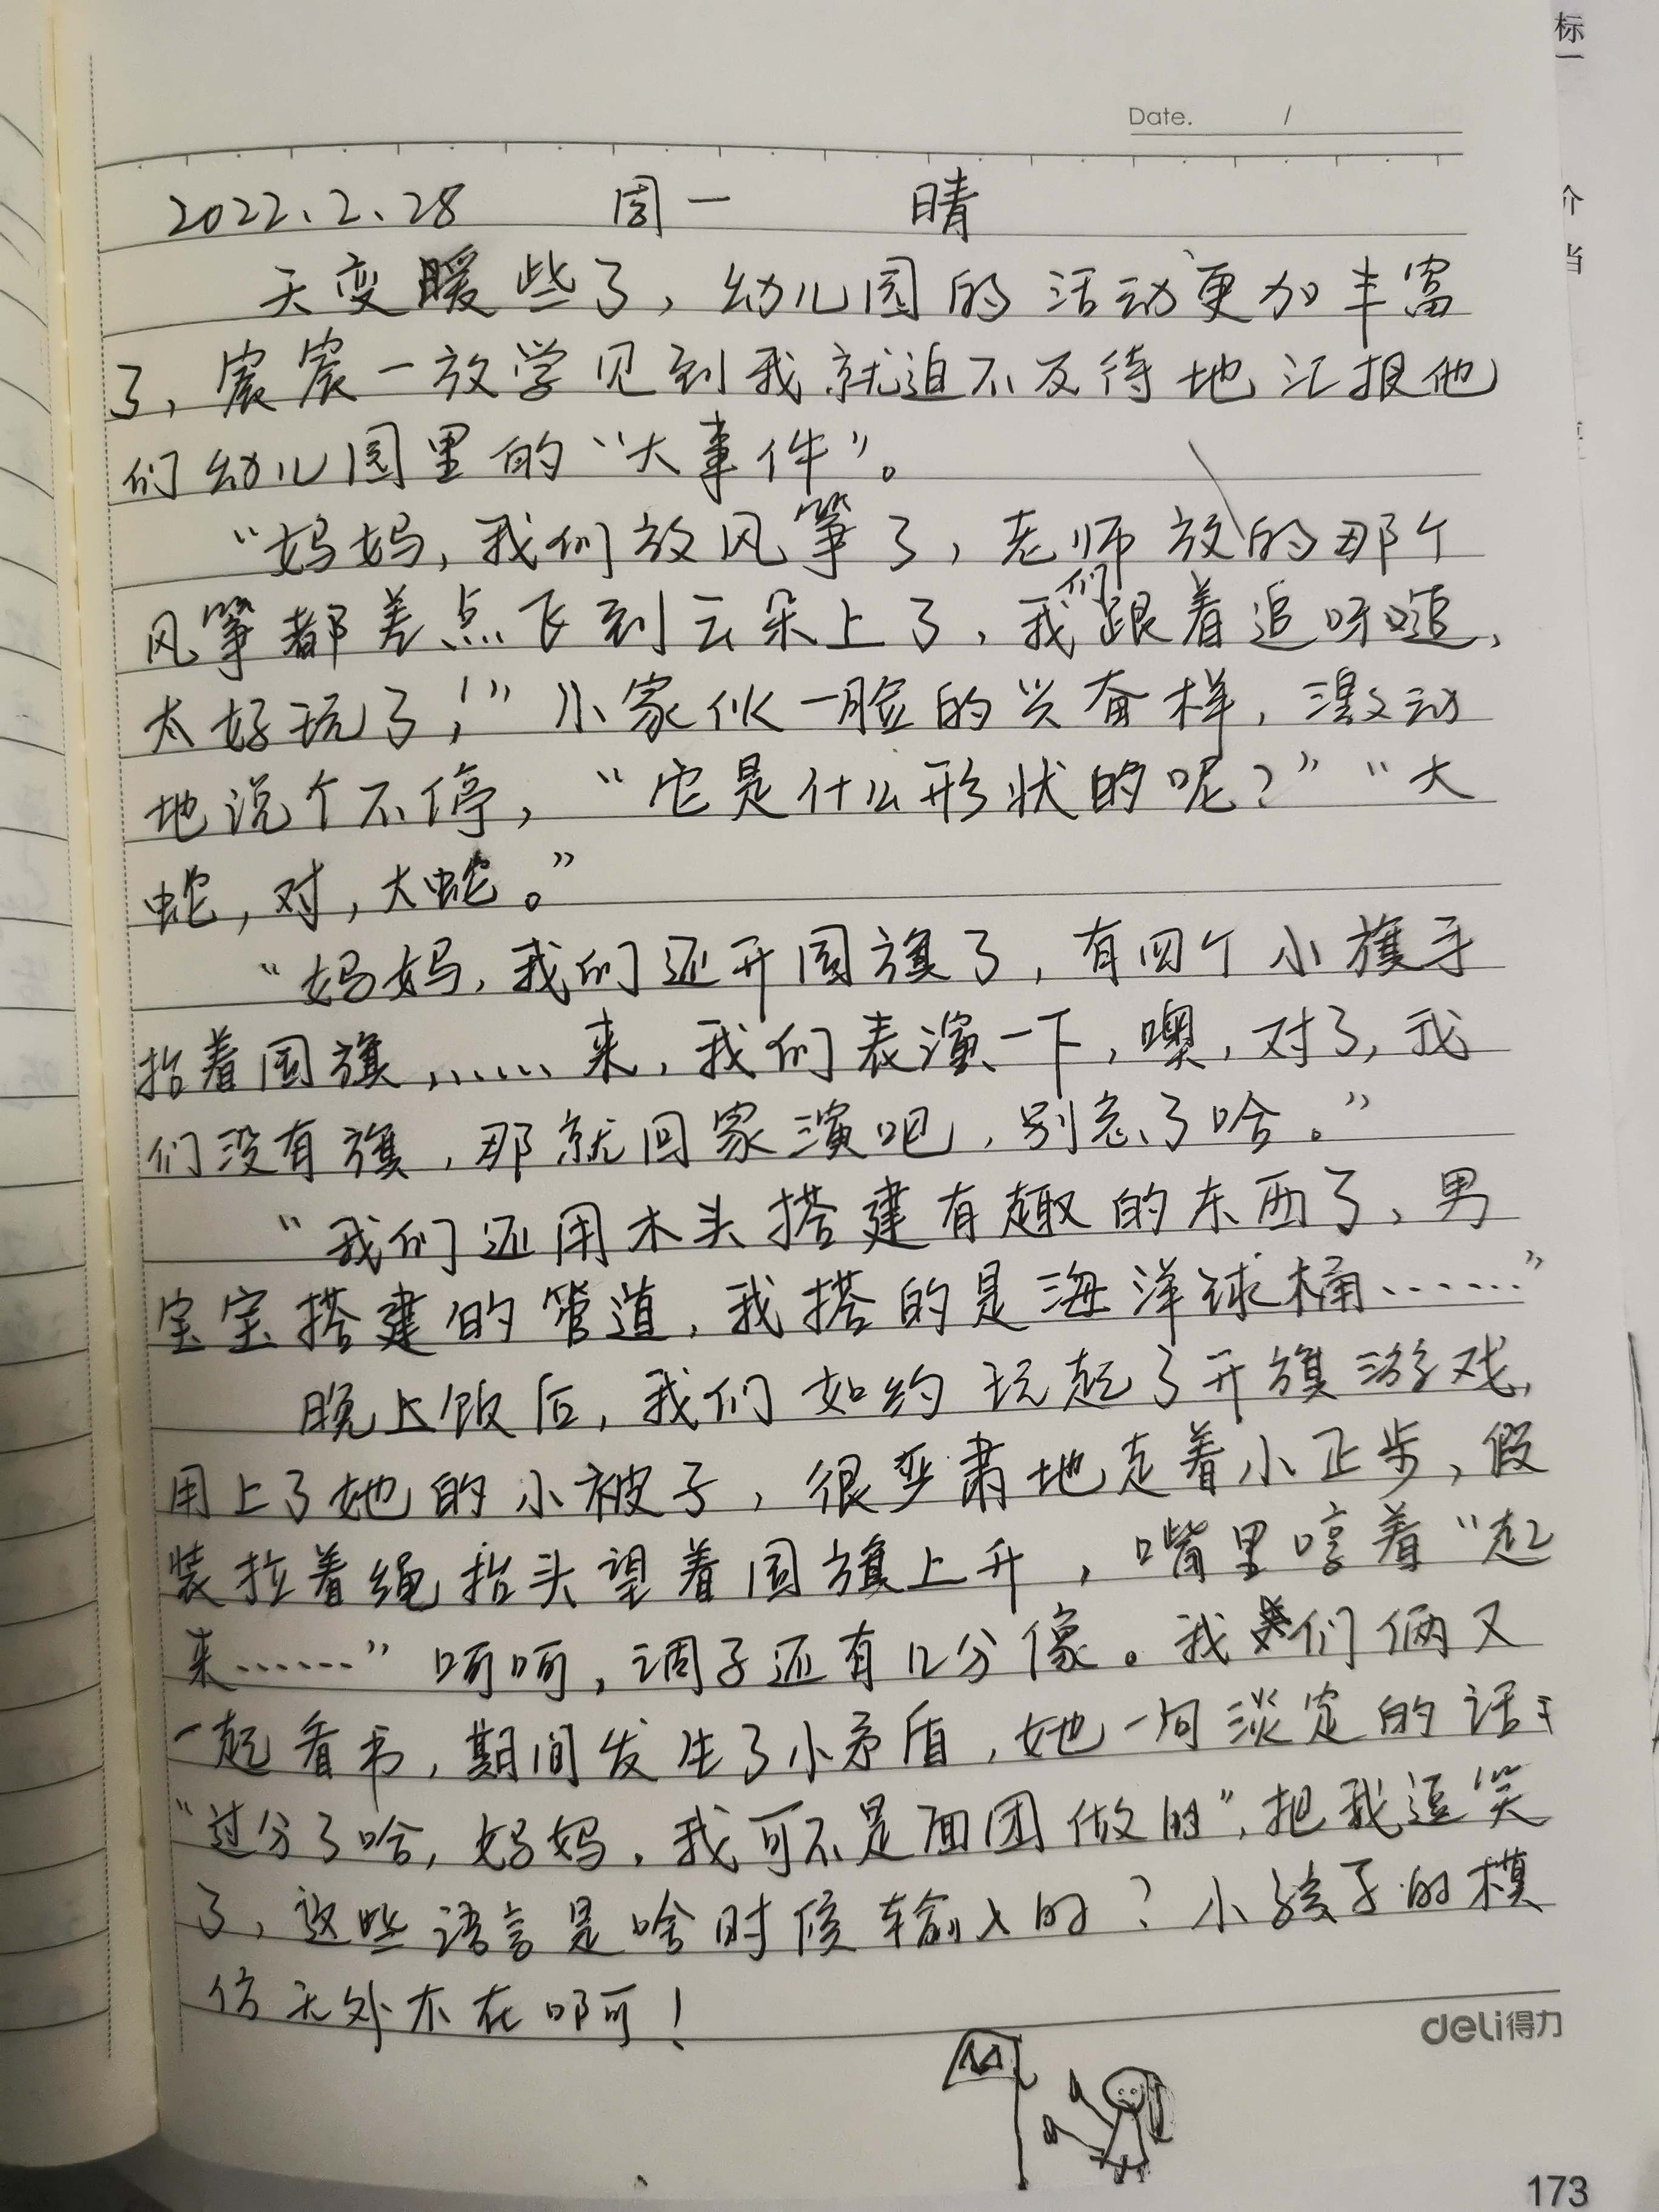 标一
Date. /
介
当
2022.2.28 周一 晴
天变暖些了，幼儿园的活动更加丰富
了，宸宸一放学见到我就迫不及待地汇报他
们幼儿园里的“大事件”。
“妈妈，我们放风筝了，老师放的那个
风筝都差点飞到云朵上了，我们跟着追呀追，
太好玩了！”小家伙一脸的兴奋样，激动
地说个不停，“它是什么形状的呢？”“大
蛇，对，大蛇。”
“妈妈，我们还升国旗了，有四个小旗手
抬着国旗，……来，我们表演一下，噢，对了，我
们没有旗，那就回家演吧，别忘了哈。”
“我们还用木头搭建有趣的东西了，男
宝宝搭建的管道，我搭的是海洋球桶……”
晚上饭后，我们如约玩起了升旗游戏，
用上了她的小被子，很严肃地走着小正步，假
装拉着绳抬头望着国旗上升，嘴里哼着“起
来……”呵呵，调子还有几分像。我们俩又
一起看书，期间发生了小矛盾，她一句淡定的话：
“过分了哈，妈妈，我可不是面团做的”，把我逗笑
了，这些语言是啥时候输入的？小孩子的模
仿无处不在啊！
deli得力
173